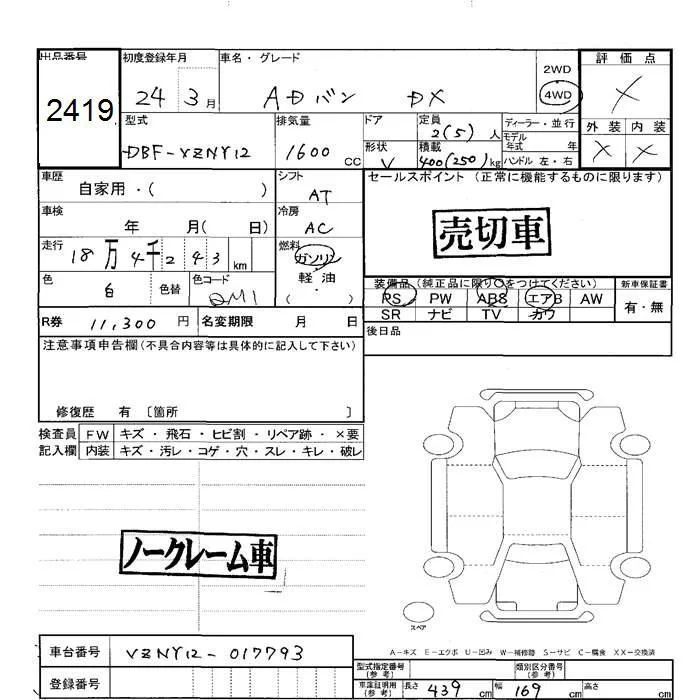 出品番号 初度登録年月 車名・グレード 評価点
2419
24 3月 ADバン DX 2WD 4WD ×
型式 排気量 ドア 定員 2(5)人 ディーラー・並行 外装 内装
DBF-VZNY12 1600cc 形状 V 積載 400(250)kg モデル年式 年 × ×
ハンドル 左・右
車歴 自家用・( ) シフト AT セールスポイント(正常に機能するものに限ります)
車検 年 月( 日) 冷房 AC 売切車
走行 18万4千243km 燃料 ガソリン
軽・油
( )
色 白 色替 色コード QM1
装備品(純正品に限り○をつけてください) 新車保証書
PS PW ABS エアB AW 有・無
SR ナビ TV カワ
R券 11,300円 名変期限 月 日 後日品
注意事項申告欄(不具合内容等は具体的に記入して下さい)
修復歴 有 〔箇所 〕
検査員 FW キズ・飛石・ヒビ割・リペア跡・×要
記入欄 内装 キズ・汚レ・コゲ・穴・スレ・キレ・破レ
ノークレーム車
スペア
A-キズ E-エクボ U-凹み W-補修跡 S-サビ C-腐食 XX-交換済
車台番号 VZNY12-017793
型式指定番号(参考) 類別区分番号(参考)
登録番号
車庫証明用(参考) 長さ 439cm 幅 169cm 高さ cm